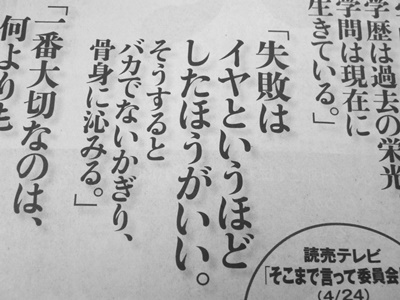 学歴は過去の栄光
学問は現在に
生きている。」
「失敗は
イヤというほど
したほうがいい。
そうすると
バカでないかぎり、
骨身に沁みる。」
「一番大切なのは、
何よりも
読売テレビ
「そこまで言って委員会
(4/24)